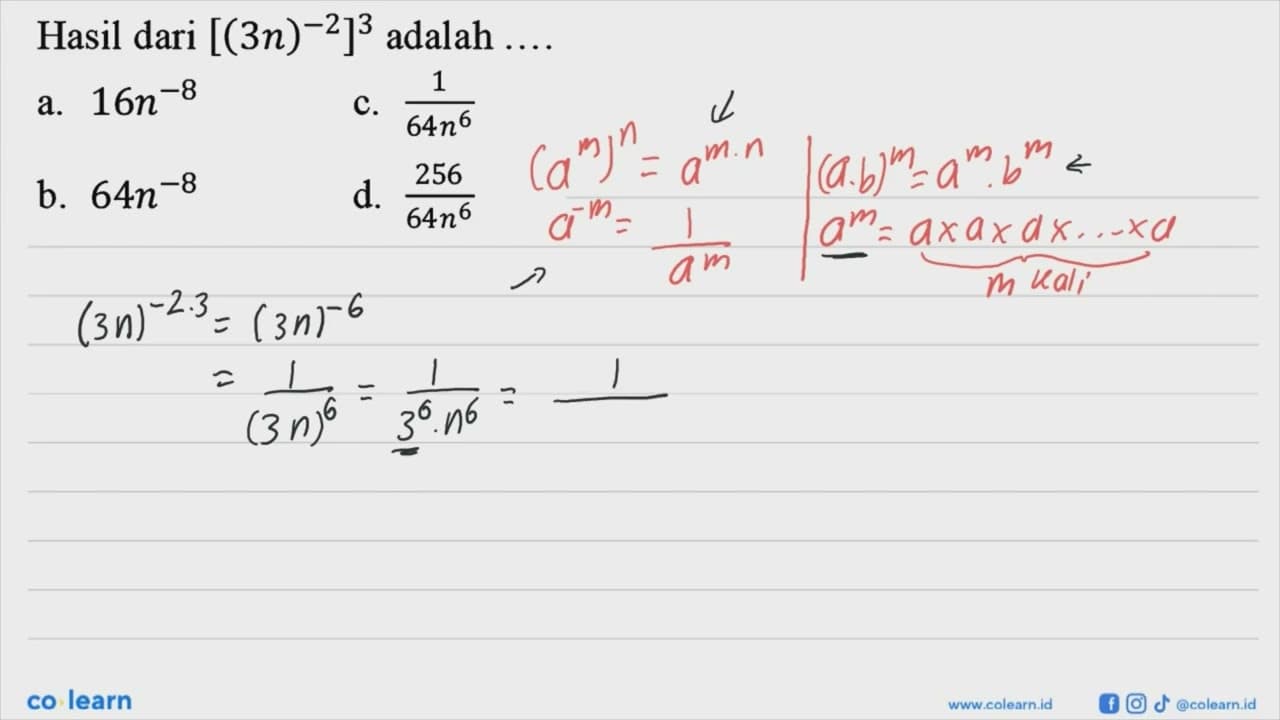 Hasil dari [(3n)⁻²]³ adalah ....
a. 16n⁻⁸ c. 1/(64n⁶)
b. 64n⁻⁸ d. 256/(64n⁶)
(a^m)^n = a^(m·n)
a^(-m) = 1/a^m
(a.b)^m = a^m . b^m
a^m = a x a x a x ... x a
m kali
(3n)^(-2.3) = (3n)⁻⁶
= 1/(3n)⁶ = 1/(3⁶.n⁶) = 1/
co learn
www.colearn.id @colearn.id